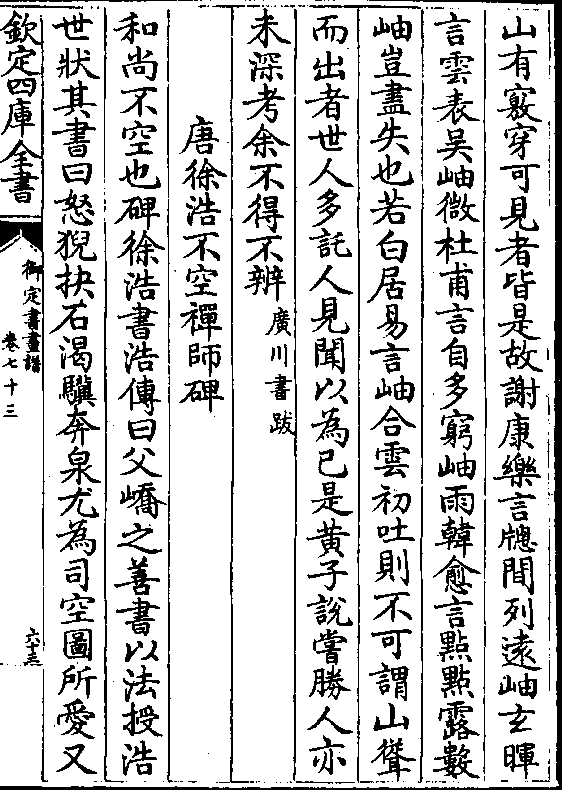 山有竅穿可見者皆是故謝康樂言牕間列遠岫玄暉
言雲表吴岫微杜甫言自多窮岫雨韓愈言點點露數
岫豈盡失也若白居易言岫合雲初吐則不可謂山聳
而出者世人多託人見聞以為已是黄子說嘗勝人亦
未深考余不得不辨廣川書跋
唐徐浩不空禪師碑
和尚不空也碑徐浩書浩傳曰父嶠之善書以法授浩
世狀其書曰怒猊抉石渴驥奔泉尤為司空圖所愛又
欽定四庫全書
御定書畫譜
卷七十三
六十三